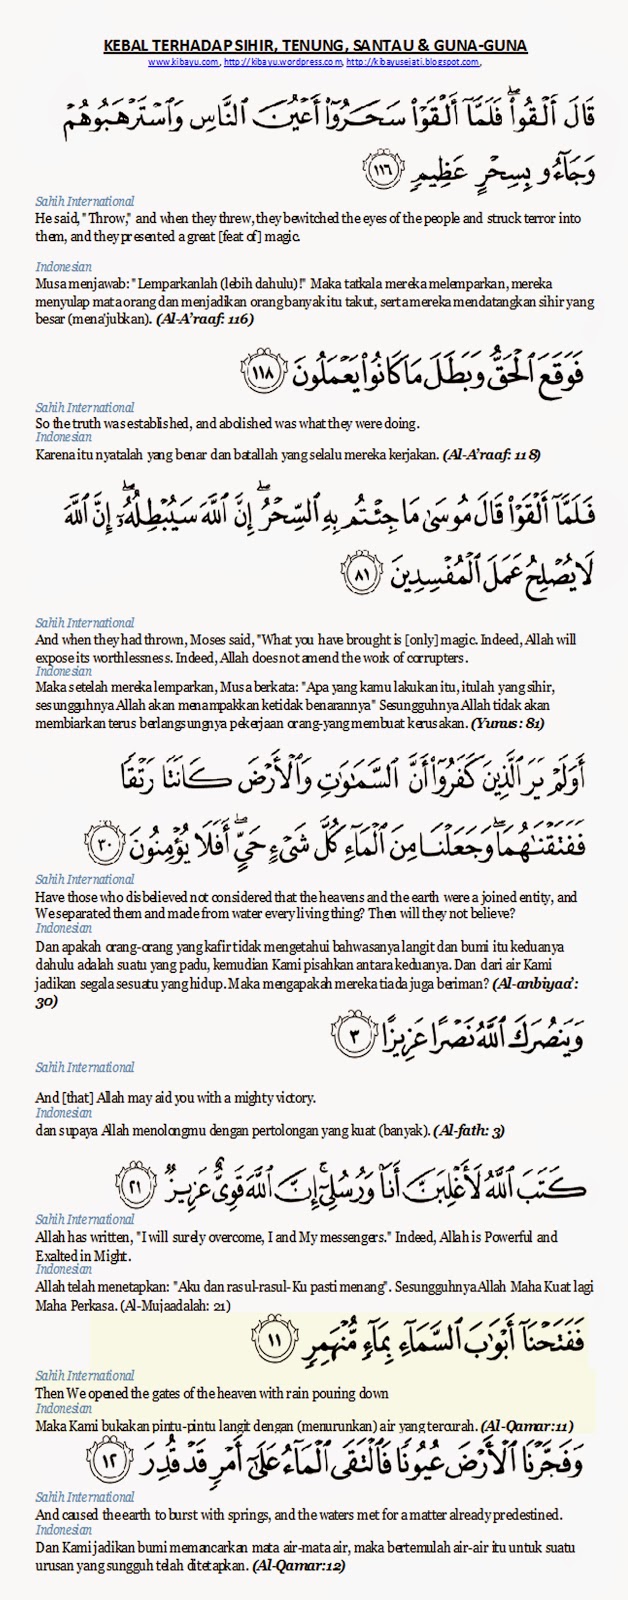 KEBAL TERHADAP SIHIR, TENUNG, SANTAU & GUNA-GUNA
www.kibayu.com, http://kibayu.wordpress.com, http://kibayusejati.blogspot.com,
قَالَ أَلْقُوا۟ ۖ فَلَمَّآ أَلْقَوْا۟ سَحَرُوٓا۟ أَعْيُنَ ٱلنَّاسِ وَٱسْتَرْهَبُوهُمْ
وَجَآءُو بِسِحْرٍ عَظِيمٍ ١١٦
Sahih International
He said, "Throw," and when they threw, they bewitched the eyes of the people and struck terror into
them, and they presented a great [feat of] magic.
Indonesian
Musa menjawab: "Lemparkanlah (lebih dahulu)!" Maka tatkala mereka melemparkan, mereka
menyulap mata orang dan menjadikan orang banyak itu takut, serta mereka mendatangkan sihir yang
besar (mena'jubkan). (Al-A'raaf: 116)
فَوَقَعَ ٱلْحَقُّ وَبَطَلَ مَا كَانُوا۟ يَعْمَلُونَ ١١٨
Sahih International
So the truth was established, and abolished was what they were doing.
Indonesian
Karena itu nyatalah yang benar dan batallah yang selalu mereka kerjakan. (Al-A'raaf: 118)
فَلَمَّآ أَلْقَوْا۟ قَالَ مُوسَىٰ مَا جِئْتُم بِهِ ٱلسِّحْرُ ۖ إِنَّ ٱللَّهَ سَيُبْطِلُهُۥٓ ۖ إِنَّ ٱللَّهَ
لَا يُصْلِحُ عَمَلَ ٱلْمُفْسِدِينَ ٨١
Sahih International
And when they had thrown, Moses said, "What you have brought is [only] magic. Indeed, Allah will
expose its worthlessness. Indeed, Allah does not amend the work of corrupters.
Indonesian
Maka setelah mereka lemparkan, Musa berkata: "Apa yang kamu lakukan itu, itulah yang sihir,
sesungguhnya Allah akan menampakkan ketidak benarannya" Sesungguhnya Allah tidak akan
membiarkan terus berlangsungnya pekerjaan orang-yang membuat kerusakan. (Yunus: 81)
أَوَلَمْ يَرَ ٱلَّذِينَ كَفَرُوٓا۟ أَنَّ ٱلسَّمَٰوَٰتِ وَٱلْأَرْضَ كَانَتَا رَتْقًا
فَفَتَقْنَٰهُمَا ۖ وَجَعَلْنَا مِنَ ٱلْمَآءِ كُلَّ شَىْءٍ حَىٍّ ۖ أَفَلَا يُؤْمِنُونَ ٣٠
Sahih International
Have those who disbelieved not considered that the heavens and the earth were a joined entity, and
We separated them and made from water every living thing? Then will they not believe?
Indonesian
Dan apakah orang-orang yang kafir tidak mengetahui bahwasanya langit dan bumi itu keduanya
dahulu adalah suatu yang padu, kemudian Kami pisahkan antara keduanya. Dan dari air Kami
jadikan segala sesuatu yang hidup. Maka mengapakah mereka tiada juga beriman? (Al-anbiyaa':
30)
وَيَنصُرَكَ ٱللَّهُ نَصْرًا عَزِيزًا ٣
Sahih International
And [that] Allah may aid you with a mighty victory.
Indonesian
dan supaya Allah menolongmu dengan pertolongan yang kuat (banyak). (Al-fath: 3)
كَتَبَ ٱللَّهُ لَأَغْلِبَنَّ أَنَا۠ وَرُسُلِىٓ ۚ إِنَّ ٱللَّهَ قَوِىٌّ عَزِيزٌ ٢١
Sahih International
Allah has written, "I will surely overcome, I and My messengers." Indeed, Allah is Powerful and
Exalted in Might.
Indonesian
Allah telah menetapkan: "Aku dan rasul-rasul-Ku pasti menang". Sesungguhnya Allah Maha Kuat lagi
Maha Perkasa. (Al-Mujaadalah: 21)
فَفَتَحْنَآ أَبْوَٰبَ ٱلسَّمَآءِ بِمَآءٍ مُّنْهَمِرٍ ١١
Sahih International
Then We opened the gates of the heaven with rain pouring down
Indonesian
Maka Kami bukakan pintu-pintu langit dengan (menurunkan) air yang tercurah. (Al-Qamar:11)
وَفَجَّرْنَا ٱلْأَرْضَ عُيُونًا فَٱلْتَقَى ٱلْمَآءُ عَلَىٰٓ أَمْرٍ قَدْ قُدِرَ ١٢
Sahih International
And caused the earth to burst with springs, and the waters met for a matter already predestined.
Indonesian
Dan Kami jadikan bumi memancarkan mata air-mata air, maka bertemulah air-air itu untuk suatu
urusan yang sungguh telah ditetapkan. (Al-Qamar:12)